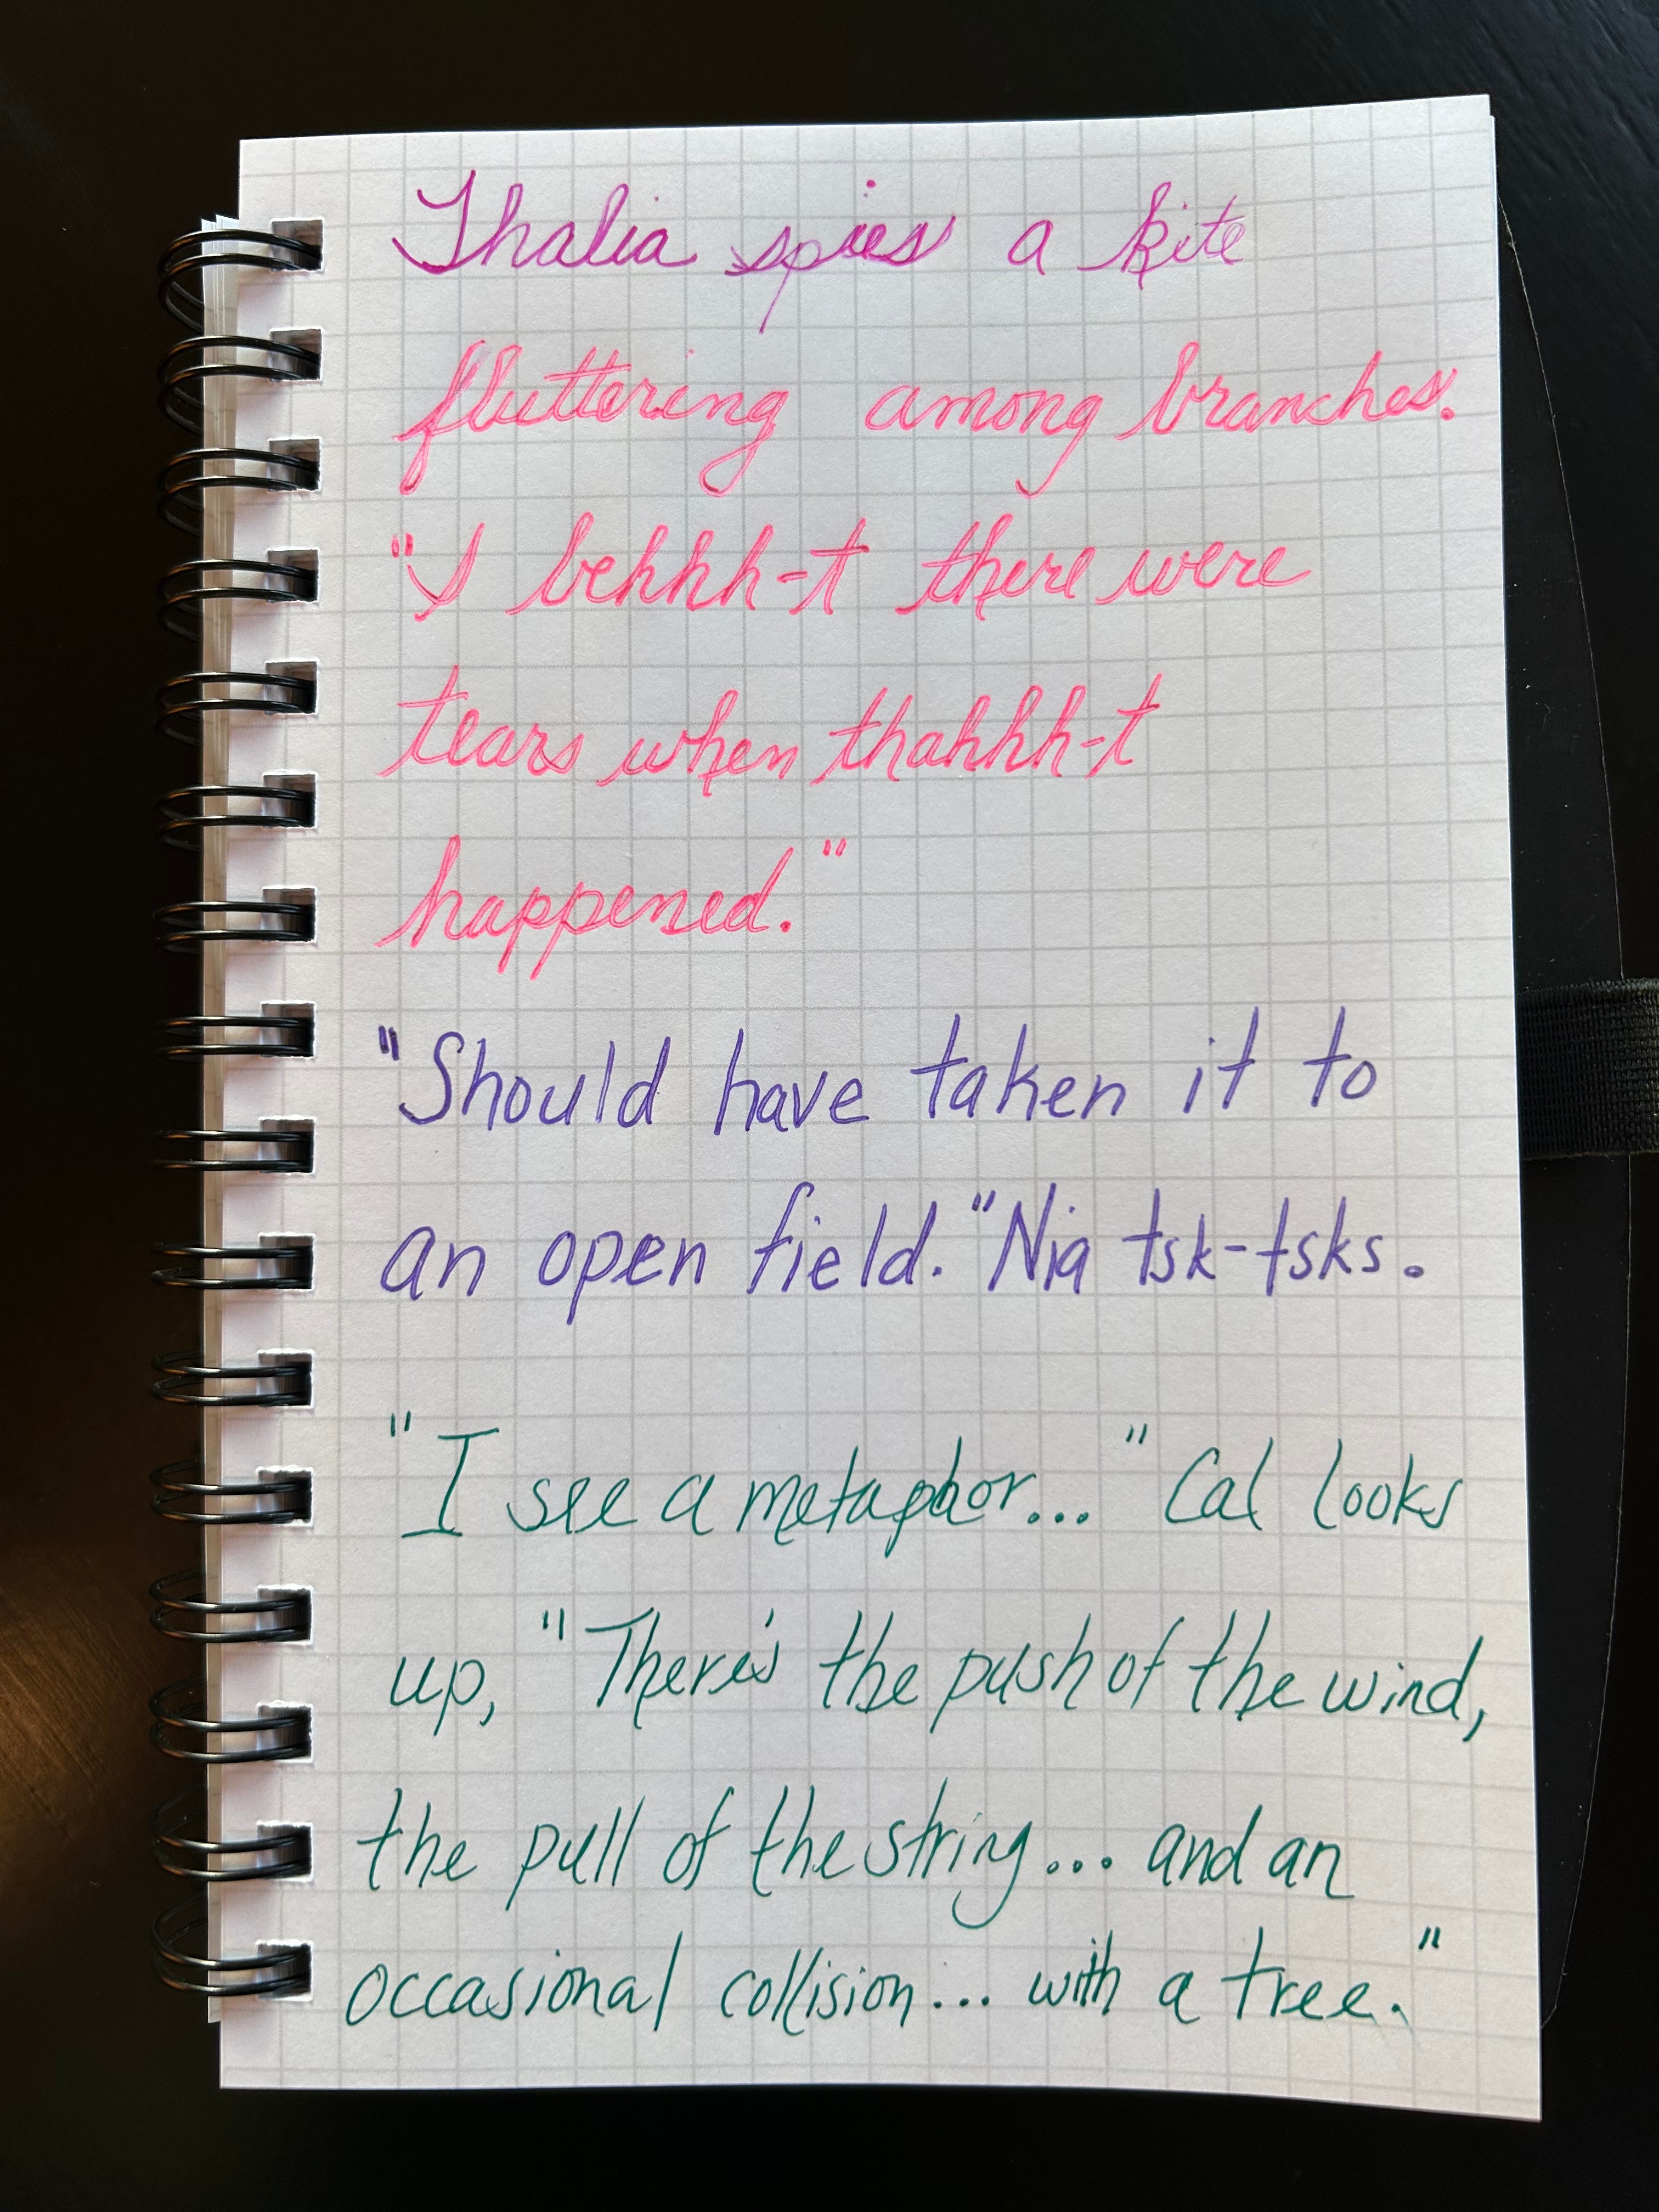 Thalia spies a kite
fluttering among branches.
"I behhh-t there were
tears when thahhh-t
happened."
"Should have taken it to
an open field." Nia tsk-tsks.
"I see a metaphor..." Cal looks
up, "There's the push of the wind,
the pull of the string... and an
occasional collision... with a tree."